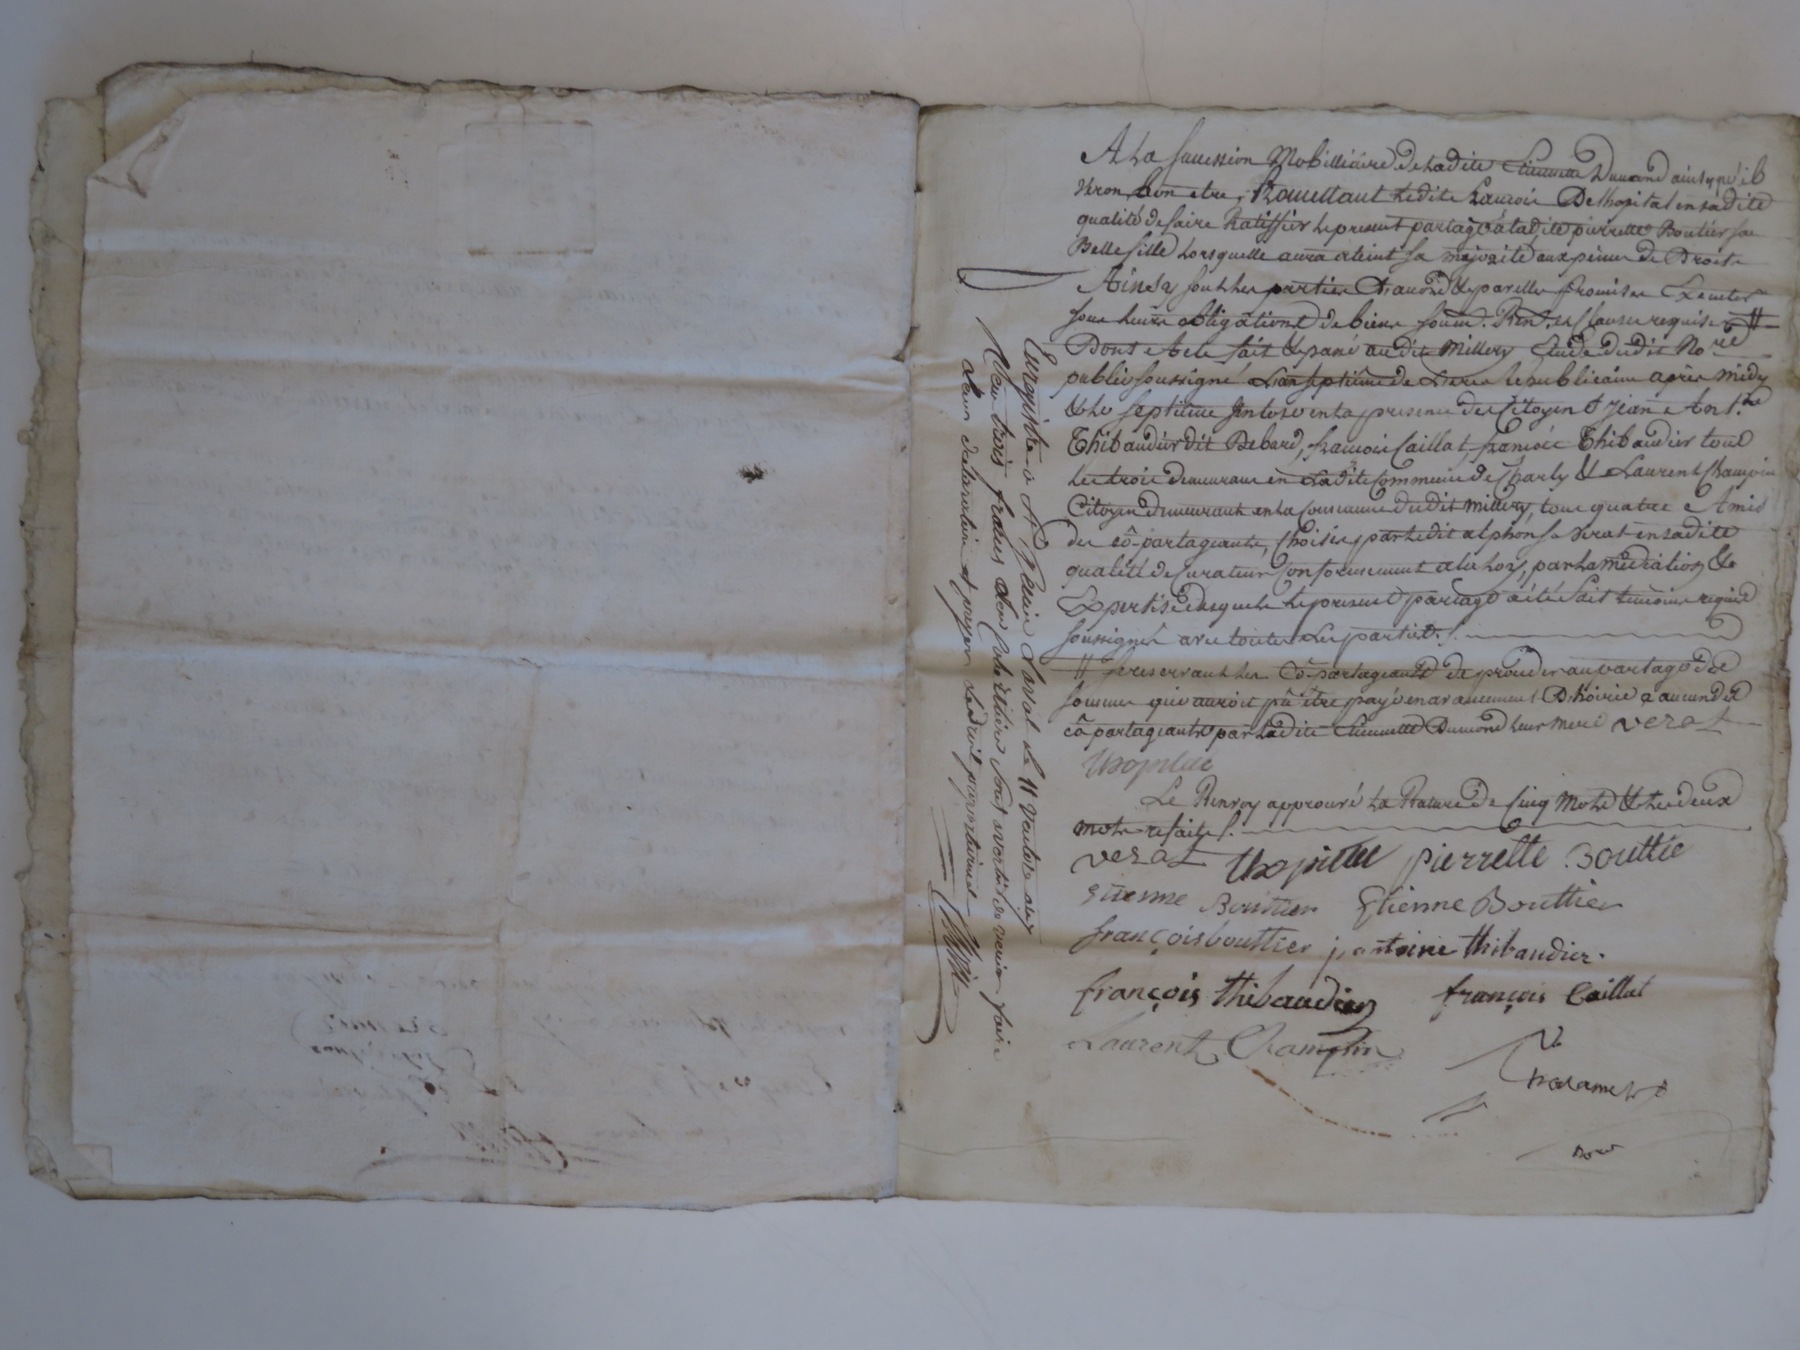 A La succession Mobilliaire de Ladite Etiennette Dumond ainsy qu'il
verron bon etre, Promettant Ledit francois Delhopital en sadite
qualité de faire Ratiffier le present partage a ladite pierrette Boutier sa
Belle fille Lorsquelle aura ateint sa majorité aux peines de Droit
Ainsy sont les parties d'accord & par elles promis executer
sous leurs obligations de biens soum. Ren. es clauses requises #
Dont acte fait & passé audit Millery Etude dudit No.re
public soussigné L'an septième de L'ere Republicaine après midy
& le septieme Ventose en la presence des Citoyens Jean Ant.ne
Thibaudier dit Debard, francois Caillat, francois Thibaudier tous
les trois demeurans en Ladite Commune de Charly & Laurent Champin
Citoyen demeurant en la Commune dudit Millery, tous quatre Amis
des cô-partageants, choisis par ledit alphonse Verat en sadite
qualité de Curateur Conformement a la Loy, par la médiation &
Expertise desquels le present partage a été fait temoins requis
soussignés avec toutes Les parties ./.
# se reservant les Cô-partageants de proceder au partage des
sommes qui auroit pû être payé en avancement D'hoirie a aucun des
cô partageants par Ladite Etiennette Dumond leur mere verat
Lhopital
Le Renvoy approuvé La Rature de Cinq Mots & Les deux
mots refaits ./.
verat Lhopital pierrette Bouttié
etienne Bouttier Etienne Bouttier
françois bouttier j. antoine thibaudier.
françois thibaudier françois Caillat
Laurent Champin
Enregistré à St Genis Laval le 11 Ventose an 7
Reçu trois francs
à leur declaration et payer